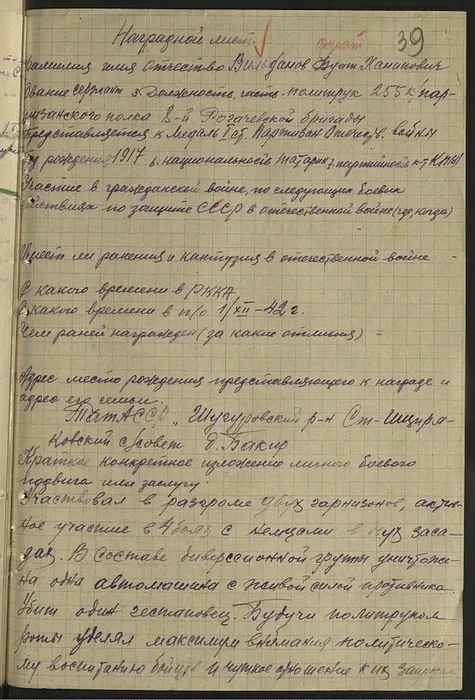 39
Наградной лист.
Фамилия имя отчество Вильданов Фуат Ханипович
Звание сержант 3. Должность, часть - политрук 255 к/пар-
тизанского полка 8-й Рогачевской бригады
Представляется к Медаль I ст. Партизан Отечеств. войны
год рождения 1917 6. национальность татарин 7. партийность к-т КП(б)
Участие в гражданской войне, по следующих боевых
действиях по защите СССР в отечественной войне (где, когда)
Имеет ли ранения и кантузия в отечественной войне -
С какого времени в РККА
С какого времени в п/о 1/XII-42 г.
Чем ранее награжден (за какие отличия) -
Адрес место рождения представляющего к награде и
адрес его семьи.
ТатАССР, Шугуровский р-н Ст-
ковский с/совет д. Бакир
Краткое конкретное изложение личного боевого
подвига или заслуг.
Участвовал в разгроме двух гарнизонов, актив-
ное участие в 4 боях с немцами в засa-
дах. В составе диверссионной группы уничтоже-
на одна автомашина с живой силой противника.
Убит один гестаповец. Будучи политруком
роты уделял максимум внимания политическо-
му воспитанию бойцов и чуткое отношение к их запросам